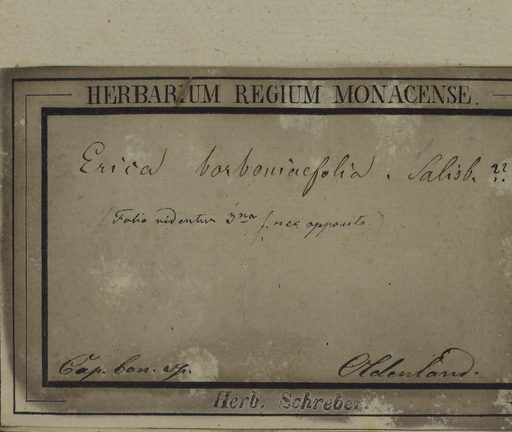 HERBARIUM REGIUM MONACENSE.
Erica borboniaefolia. Salisb. ??
(Folia videntur 3na (. nec opposita.)
Cap. bon. sp.
Oldenland.
Herb. Schreber.